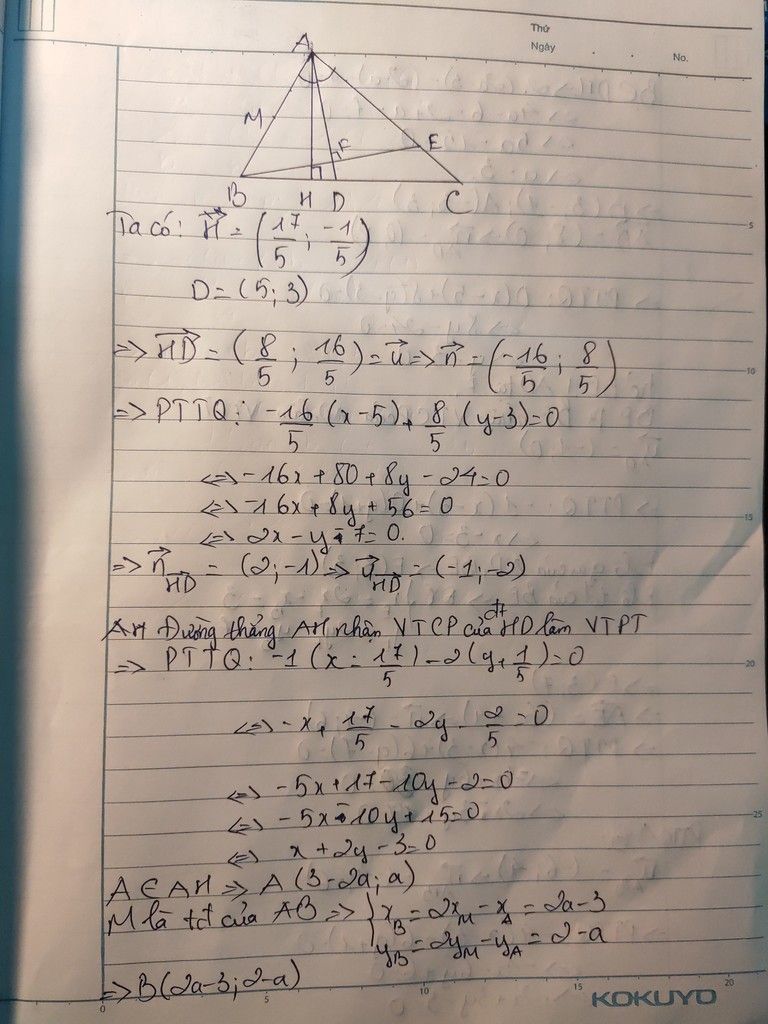 Thứ
Ngày . . No.
A
M
F
E
B H D C
Ta có: H⃗ = (17/5; -1/5)
D = (5; 3)
5
=> HD⃗ = (8/5; 16/5) = u⃗ => n⃗ = (-16/5; 8/5)
10
=> PTTQ: -16/5 (x-5) + 8/5 (y-3) = 0
<=> -16x + 80 + 8y - 24 = 0
<=> -16x + 8y + 56 = 0
15
<=> 2x - y - 7 = 0.
=> n⃗_HD = (2; -1) => u⃗_HD = (-1; -2)
AH Đường thẳng AH nhận VTCP của đt HD làm VTPT
=> PTTQ: -1 (x - 17/5) - 2 (y + 1/5) = 0
20
<=> -x + 17/5 - 2y - 2/5 = 0
<=> -5x + 17 - 10y - 2 = 0
<=> -5x - 10y + 15 = 0
25
<=> x + 2y - 3 = 0
A ∈ AH => A (3 - 2a; a)
M là tđ của AB => { x_B = 2x_M - x_A = 2a - 3
y_B = 2y_M - y_A = 2 - a
=> B (2a - 3; 2 - a)
0 5 10 15 20
KOKUYO